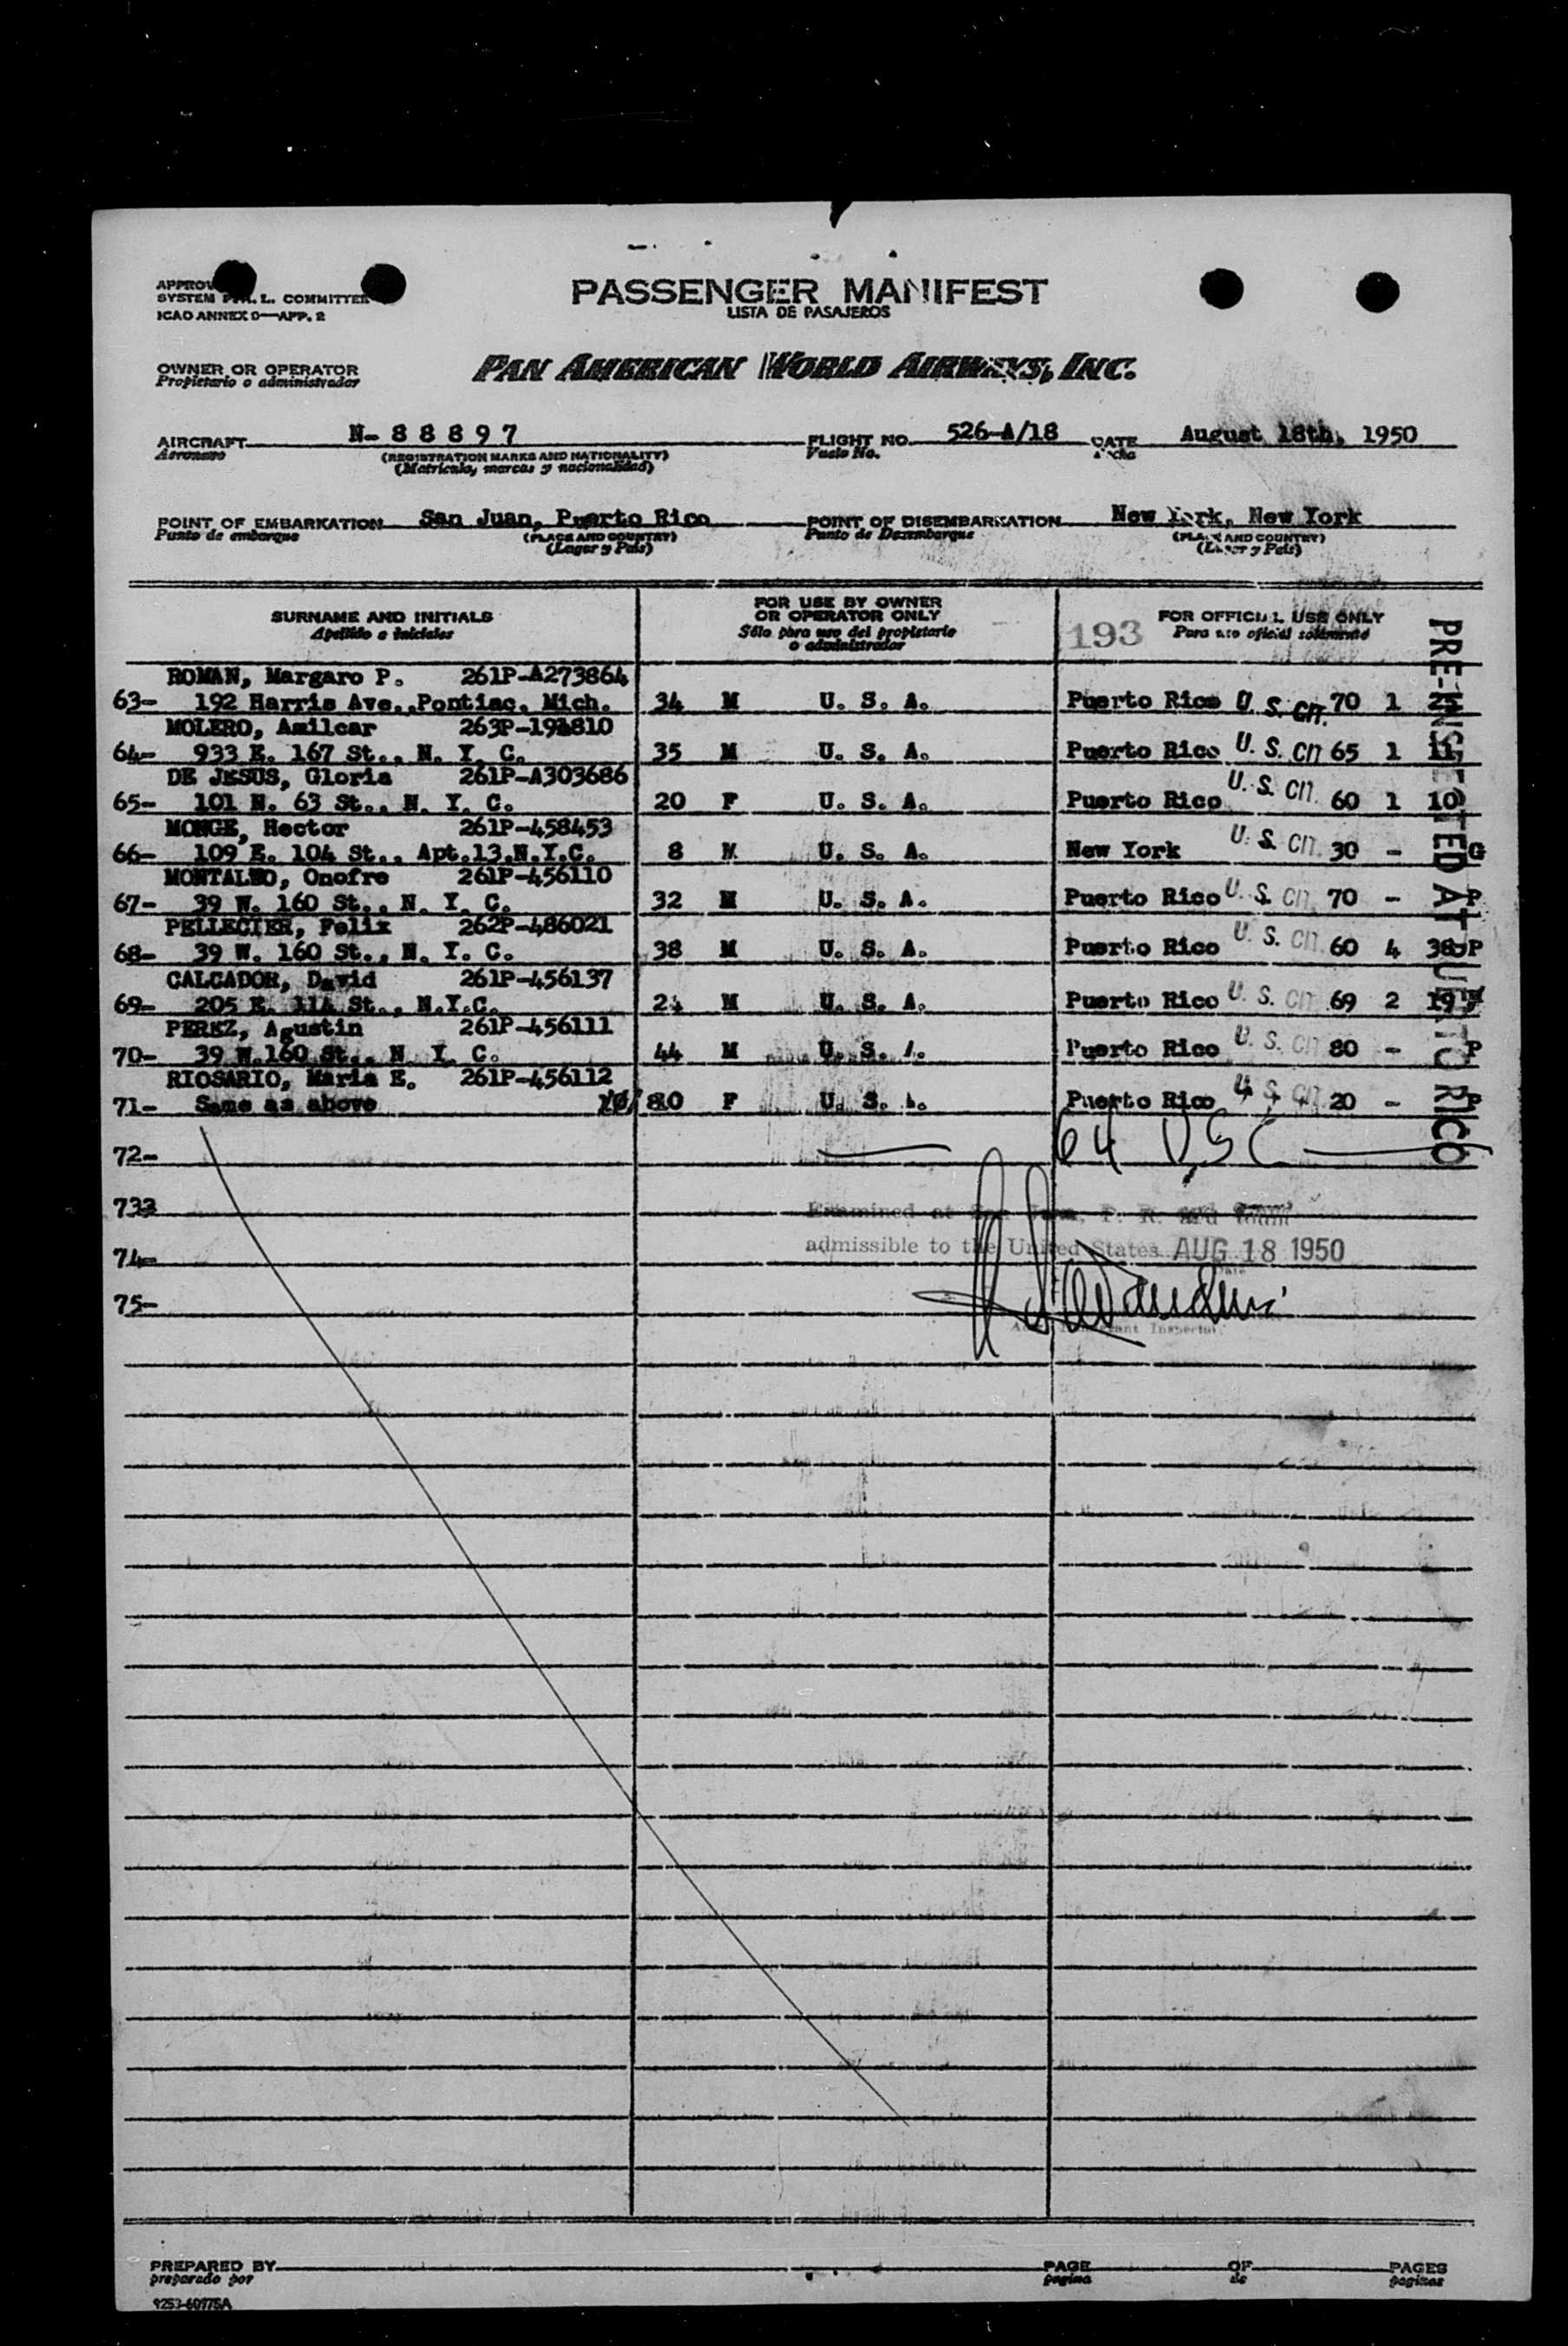 PASSENGER MANIFEST
LISTA DE PASAJEROS
SYSTEM L. COMMITTEE
ICAO ANNEX 9—APP. 2
OWNER OR OPERATOR
Propietario o administrador
PAN AMERICAN WORLD AIRWAYS, INC.
AIRCRAFT N- 8 8 8 9 7 FLIGHT NO. 526-A/18 DATE August 18th, 1950
Aeronave (REGISTRATION MARKS AND NATIONALITY) Vuelo No.
(Matrícula, marcas y nacionalidad)
POINT OF EMBARKATION San Juan, Puerto Rico POINT OF DISEMBARKATION New York, New York
Punto de embarque (PLACE AND COUNTRY) Punto de Desembarque (PLACE AND COUNTRY)
(Lugar y País) (Lugar y País)
SURNAME AND INITIALS FOR USE BY OWNER OR OPERATOR ONLY FOR OFFICIAL USE ONLY
Apellido e iniciales Sólo para uso del propietario o administrador 193 Para uso oficial solamente
PRE-INSPECTED AT PUERTO RICO
ROMAN, Margaro P. 261P-A273864
63- 192 Harris Ave., Pontiac, Mich. 34 M U. S. A. Puerto Rico U. S. CIT. 70 1 25
MOLERO, Amilcar
64- 933 E. 167 St., N. Y. C. 35 M U. S. A. Puerto Rico U. S. CIT 65 1 11
DE JESUS, Gloria 261P-A303686
65- 101 N. 63 St., N. Y. C. 20 F U. S. A. Puerto Rico U. S. CIT. 60 1 10
MONGE, Hector 261P-458453
66- 109 E. 104 St., Apt.13,N.Y.C. 8 M U. S. A. New York U. S. CIT. 30 - G
MONTALBO, Onofre 261P-456110
67- 39 W. 160 St., N. Y. C. 32 M U. S. A. Puerto Rico U. S. CIT. 70 - P
PELLECIER, Felix 262P-486021
68- 39 W. 160 St., N. Y. C. 38 M U. S. A. Puerto Rico U. S. CIT. 60 4 38 P
CALCADOR, David 261P-456137
69- 205 E. 114 St., N.Y.C. M U. S. A. Puerto Rico U. S. CIT 69 2 19
PEREZ, Agustin 261P-456111
70- 39 W.160 St., N Y. C. 44 M U. S. A. Puerto Rico U. S. CIT 80 - P
RIOSARIO, Maria E. 261P-456112
71- Same as above F U. S. A. Puerto Rico U. S. CIT. 20 - P
72- 64 USC
733
Examined at San Juan, P. R. and found
74- admissible to the United States AUG 18 1950
Date
75-
Immigrant Inspector.
PREPARED BY PAGE OF PAGES
preparado por página de páginas
9253-60775A